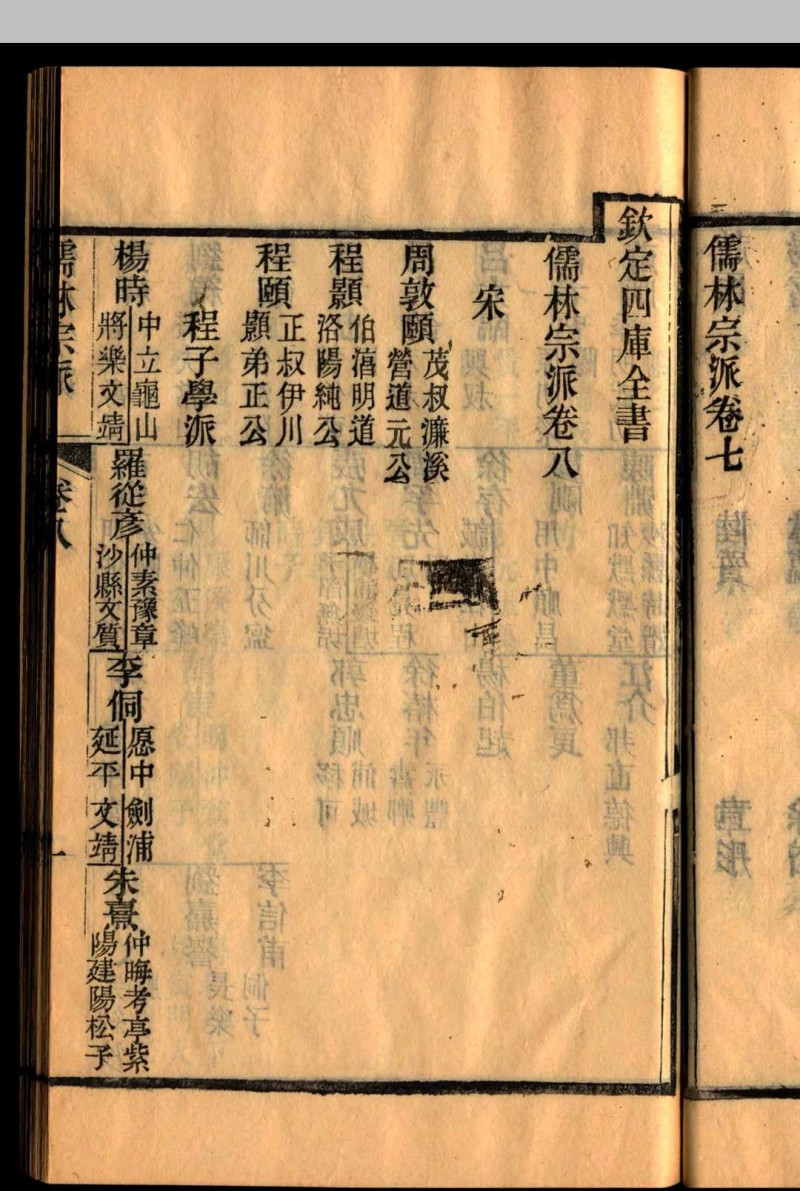 儒林宗派卷七
欽定四庫全書
儒林宗派卷八
宋
周敦頤
茂叔濂溪
營道元公
程顥
伯淳明道
洛陽純公
程頤
正叔伊川
顥弟正公
程子學派
楊時
中立龜山
將樂文靖
羅從彥
仲素豫章
沙縣文質
李侗
愿中劍浦
延平文靖
朱熹
仲晦考亭紫
陽建陽松子
儒林宗派
卷八
一